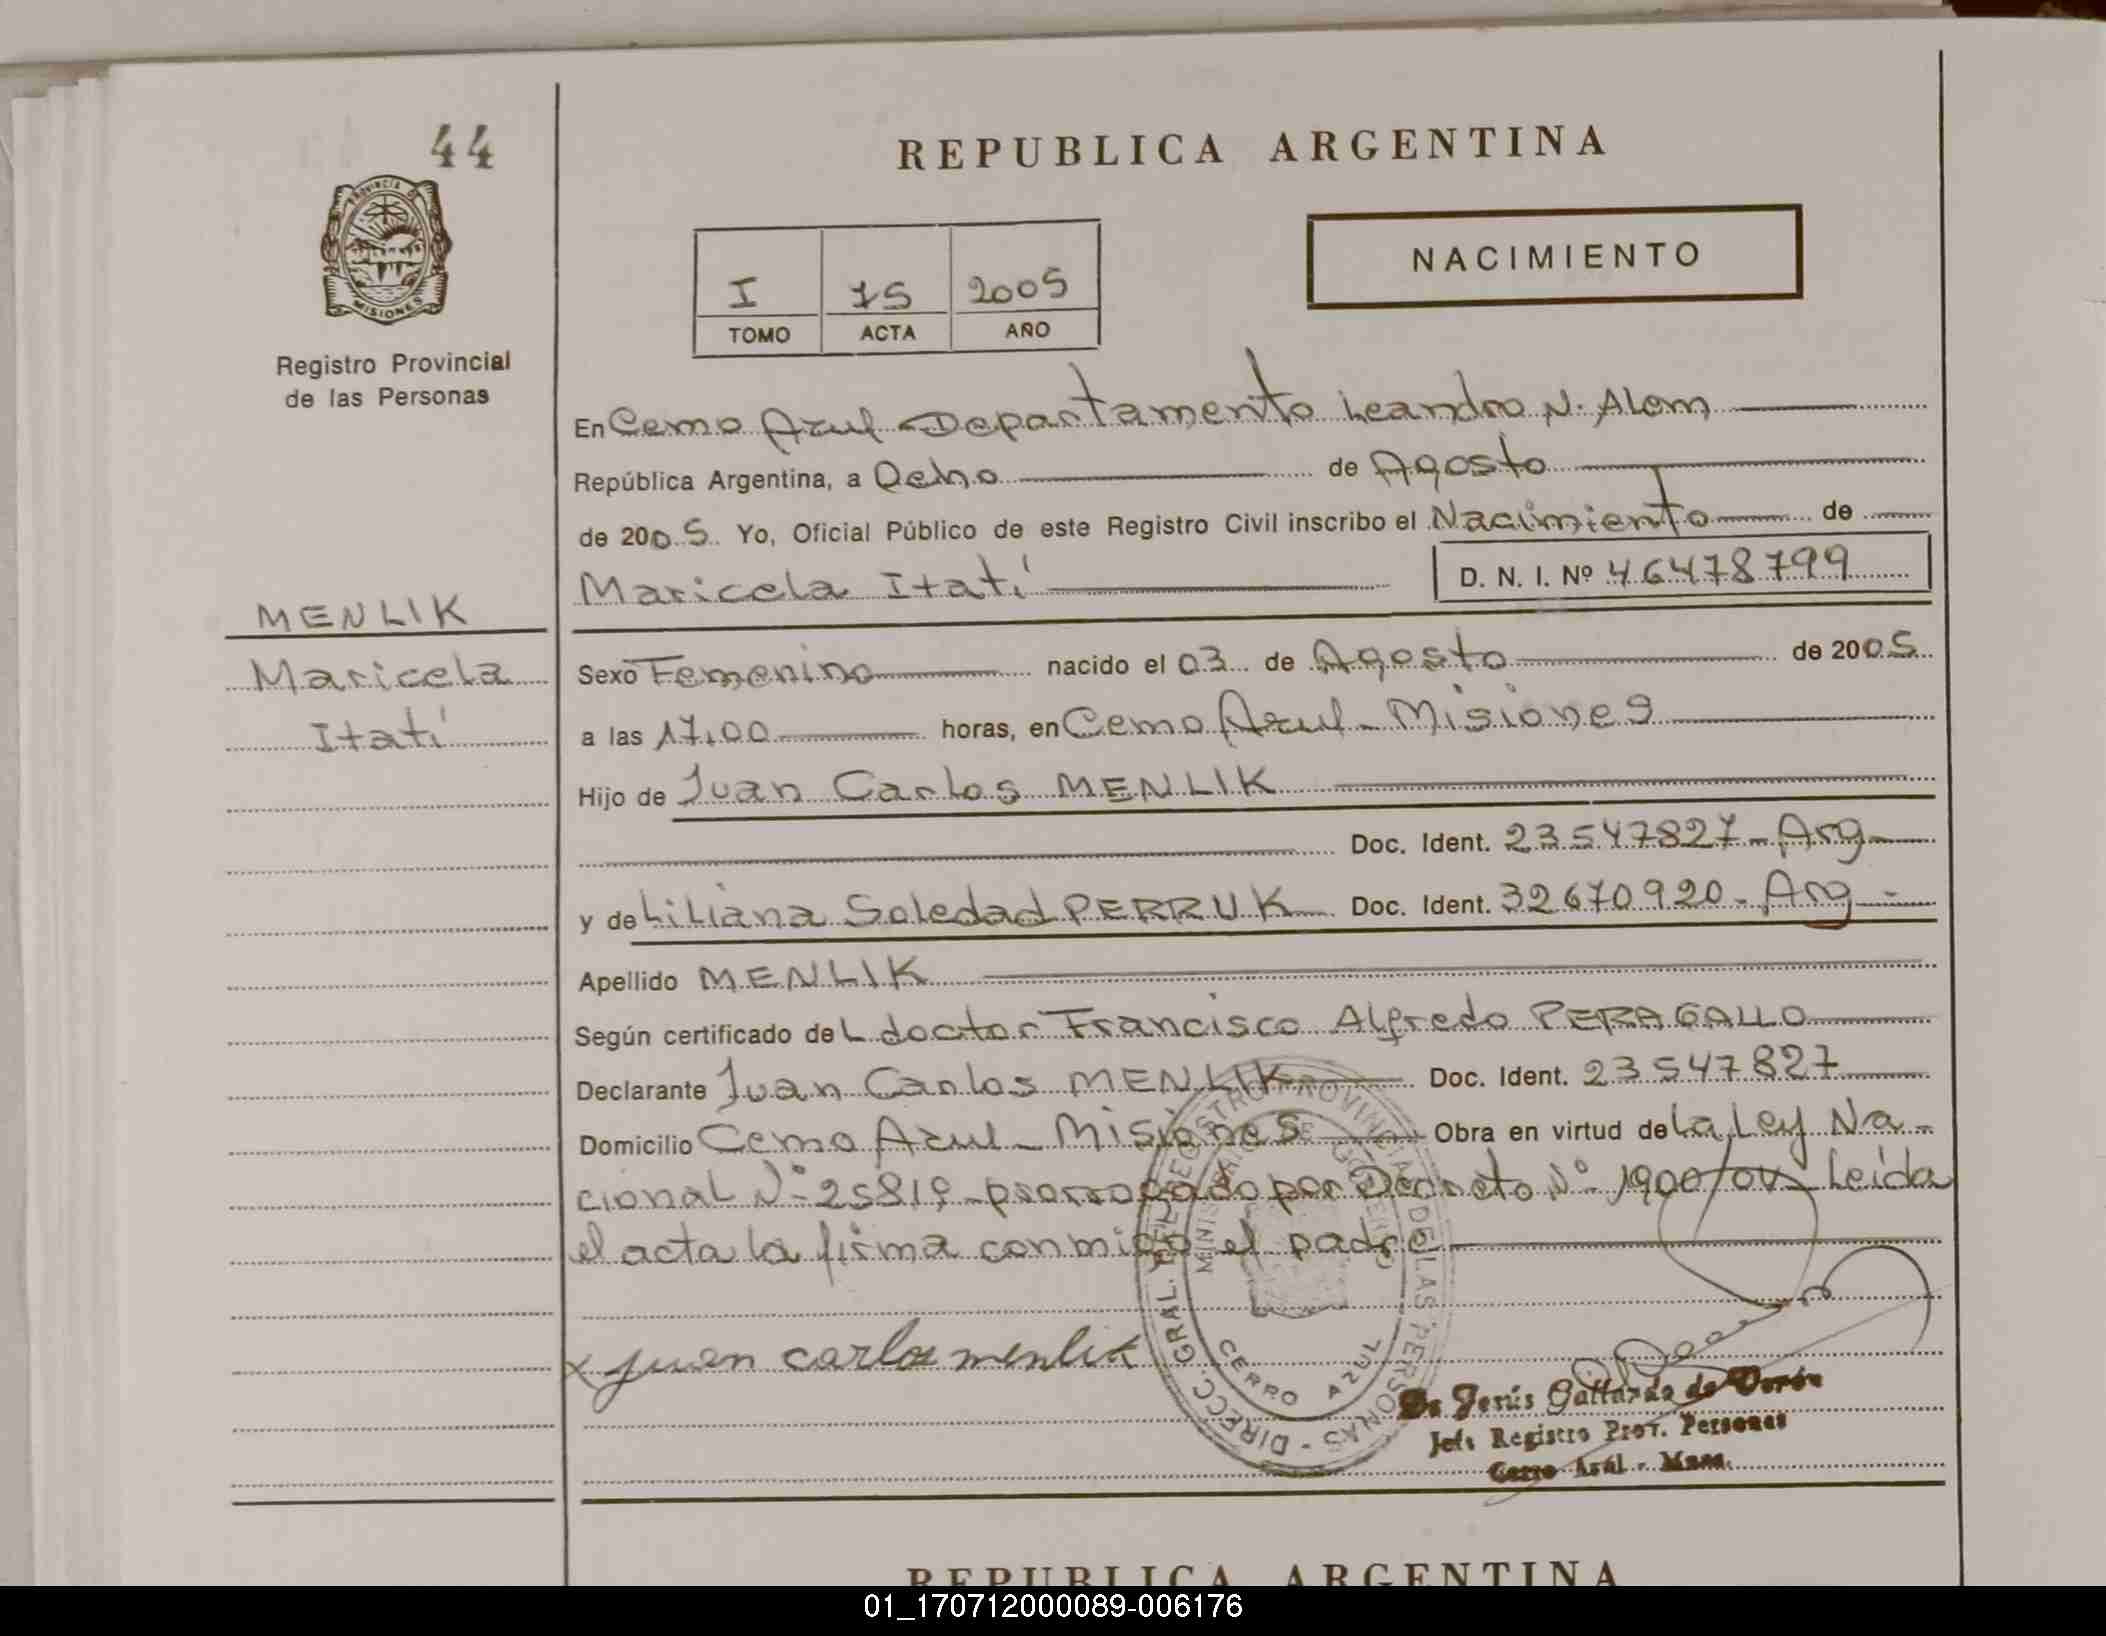 44
REPUBLICA ARGENTINA
PROVINCIA DE
MISIONES
NACIMIENTO
I 15 2005
TOMO ACTA AÑO
Registro Provincial
de las Personas
En Cerro Azul Departamento Leandro N. Alem
República Argentina, a Ocho de Agosto
de 2005. Yo, Oficial Público de este Registro Civil inscribo el Nacimiento de
Maricela Itatí D. N. I. Nº 46478799
MENLIK
Maricela
Itatí
Sexo Femenino nacido el 03 de Agosto de 2005
a las 17,00 horas, en Cerro Azul - Misiones
Hijo de Juan Carlos MENLIK
Doc. Ident. 23547827 - Arg -
y de Liliana Soledad PERRUK Doc. Ident. 32670920 - Arg -
Apellido MENLIK
Según certificado del doctor Francisco Alfredo PERAGALLO
Declarante Juan Carlos MENLIK Doc. Ident. 23547827
Domicilio Cerro Azul - Misiones Obra en virtud de la Ley Na-
cional Nº 25819 prorrogado por Decreto Nº 1900/04 Leída
el acta la firma conmigo el padre
x juan carlos menlik
DIRECC. GRAL. DEL REGISTRO PROVINCIAL DE LAS PERSONAS -
MINISTERIO DE GOBIERNO
CERRO AZUL
Jesús Gallardo de Dorón
Jefe Registro Prov. Personas
Cerro Azul - Mnes.
REPUBLICA ARGENTINA
01_170712000089-006176